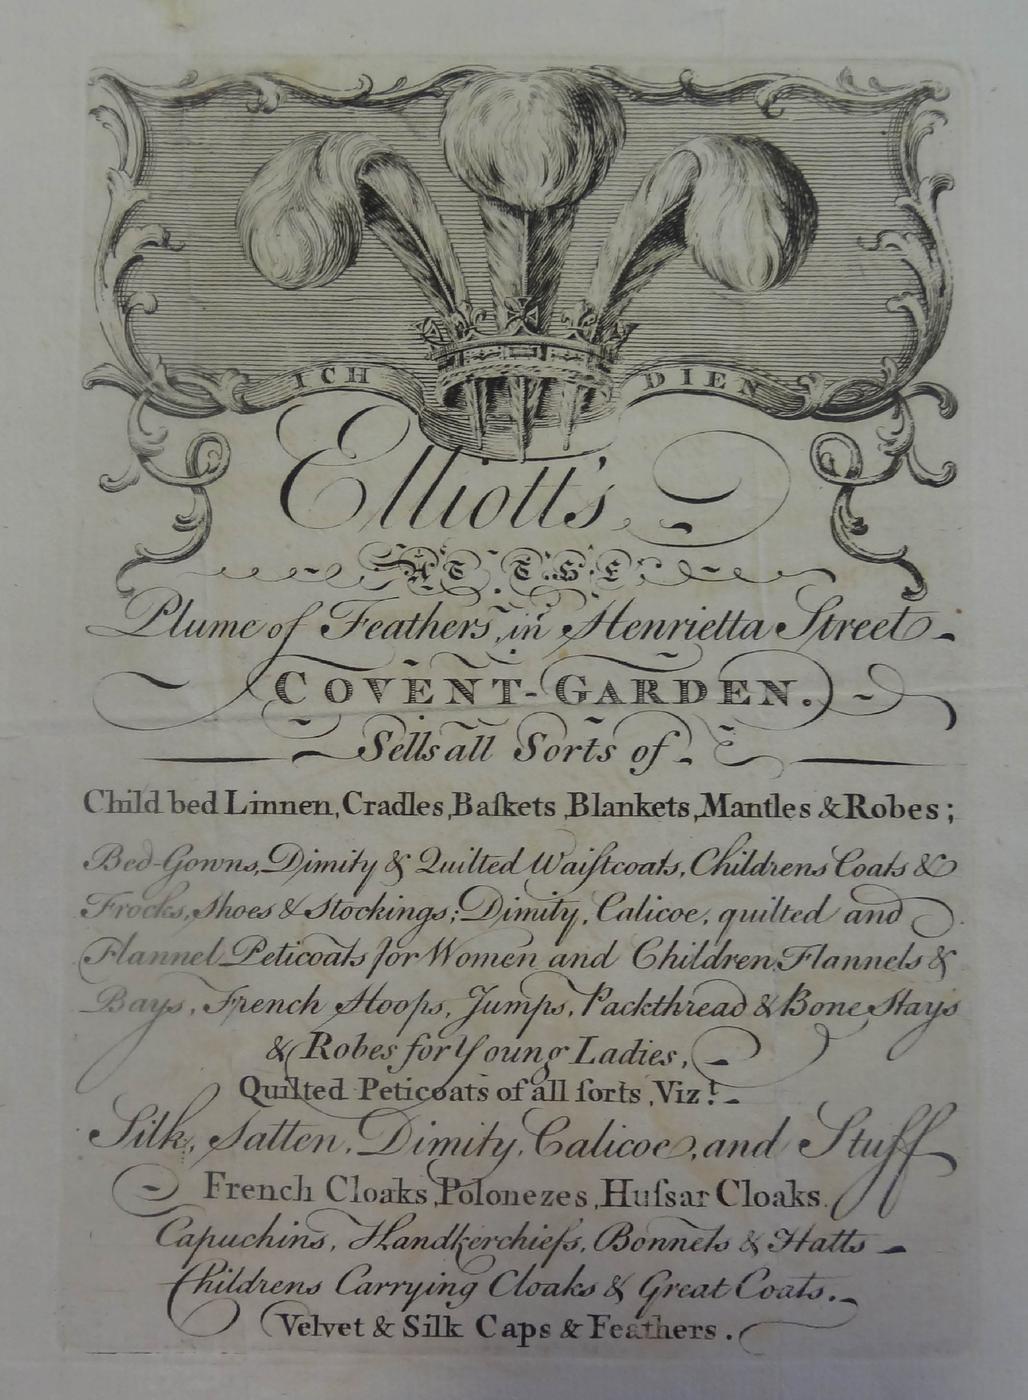 ICH DIEN
Elliott's
AT THE
Plume of Feathers, in Henrietta Street
COVENT-GARDEN.
Sells all Sorts of
Child bed Linnen, Cradles, Baſkets, Blankets, Mantles & Robes;
Bed-Gowns, Dimity & Quilted Waiſtcoats, Childrens Coats &
Frocks, Shoes & Stockings; Dimity, Calicoe, quilted and
Flannel Peticoats for Women and Children, Flannels &
Bays, French Hoops, Jumps, Packthread & Bone Stays
& Robes for Young Ladies,
Quilted Peticoats of all ſorts, Viz.t
Silk, Satten, Dimity, Calicoe, and Stuff
French Cloaks, Polonezes, Huſsar Cloaks.
Capuchins, Handkerchiefs, Bonnets & Hatts
Childrens Carrying Cloaks & Great Coats.
Velvet & Silk Caps & Feathers.